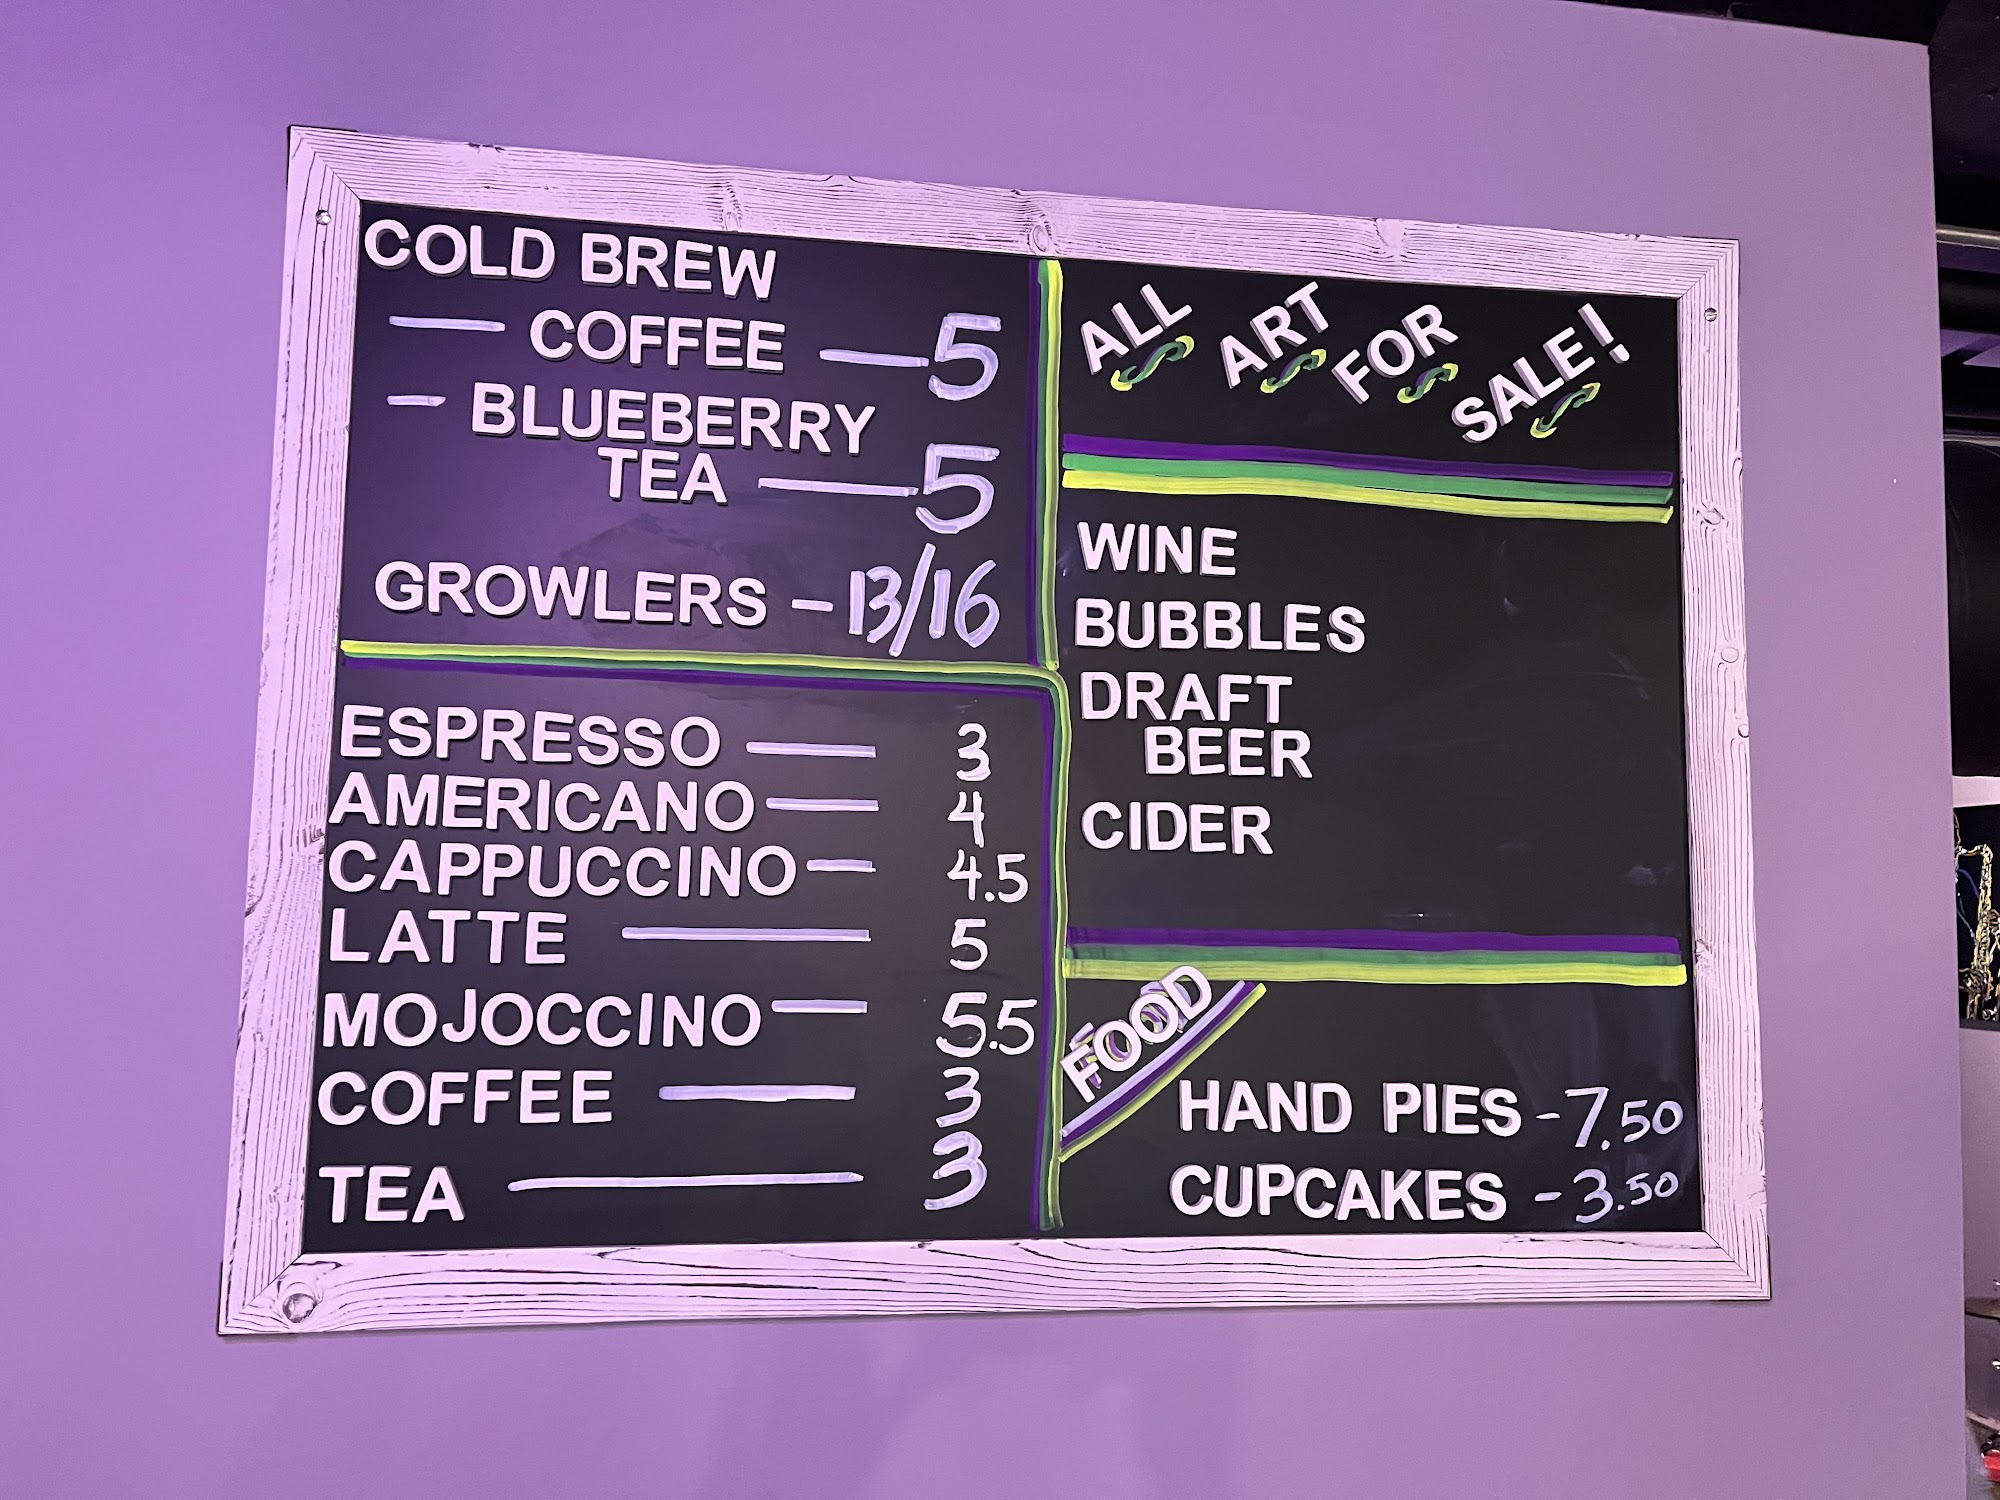 COLD BREW
— COFFEE — 5
— BLUEBERRY
TEA — 5
GROWLERS — 13/16
ESPRESSO — 3
AMERICANO — 4
CAPPUCCINO — 4.5
LATTE — 5
MOJOCCINO — 5.5
COFFEE — 3
TEA — 3
ALL ART FOR SALE!
WINE
BUBBLES
DRAFT
BEER
CIDER
FOOD
HAND PIES - 7.50
CUPCAKES - 3.50